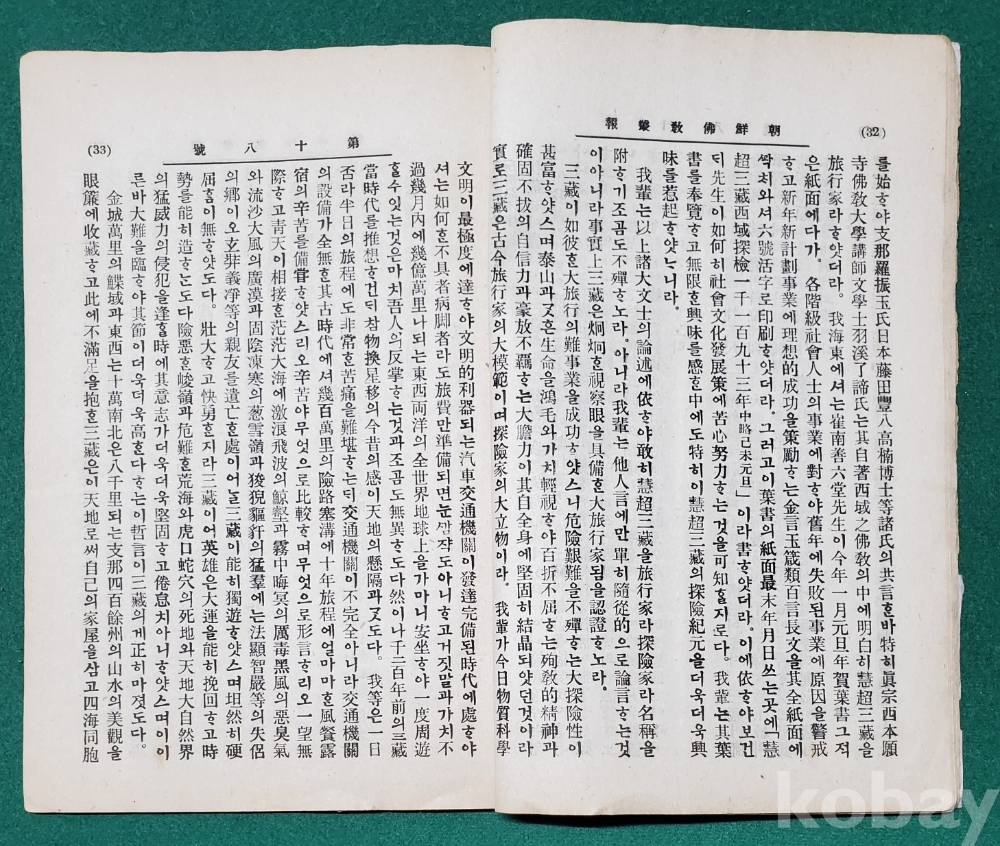 朝鮮佛敎叢報
(32)
를始ᄒᆞ야支那羅振玉氏日本藤田豐八高楠博士等諸氏의共言ᄒᆞᆫ바特히眞宗西本願
寺佛敎大學講師文學士羽溪了諦氏ᄂᆞᆫ其自著西城之佛敎의中에明白히慧超三藏을
旅行家라ᄒᆞ얏더라。我海東에셔ᄂᆞᆫ崔南善六堂先生이今年一月元旦年賀葉書그져
은紙面에다가、各階級社會人士의事業에對ᄒᆞ야舊年에失敗된事業에原因을警戒
ᄒᆞ고新年新計劃事業에理想的成功을策勵ᄒᆞᄂᆞᆫ金言玉箴類百言長文을其全紙面에
ᄲᅡᆨ처와셔六號活字로印刷ᄒᆞ얏더라。그러고이葉書의紙面最末年月日쓰ᄂᆞᆫ곳에「慧
超三藏西域探檢一千一百九十三年中略己未元旦」이라書ᄒᆞ얏더라。이에依ᄒᆞ야보건
ᄃᆡ先生이如何히社會文化發展策에苦心努力ᄒᆞᄂᆞᆫ것을可知ᄒᆞᆯ지로다。我輩ᄂᆞᆫ其葉
書를奉覽ᄒᆞ고無限ᄒᆞᆫ興味를感ᄒᆞᆫ中에도特히慧超三藏의探險紀元을더욱더욱興
味를惹起ᄒᆞ얏ᄂᆞ니라。
我輩ᄂᆞᆫ以上諸大文士의論述에依ᄒᆞ야敢히慧超三藏을旅行家라探險家라名稱을
附ᄒᆞ기조곰도不憚ᄒᆞ노라。아니라我輩ᄂᆞᆫ他人言에만單히隨從的으로論言ᄒᆞᄂᆞᆫ것
이아니라事實上三藏은炯炯ᄒᆞᆫ視察眼을具備ᄒᆞᆫ大旅行家됨을認證ᄒᆞ노라。
三藏이如彼ᄒᆞᆫ大旅行의難事業을成功ᄒᆞ얏스니危險艱難을不憚ᄒᆞᄂᆞᆫ大探險性이
甚富ᄒᆞ얏스며泰山과ᄀᆞᆺᄒᆞᆫ生命을鴻毛와가치輕視ᄒᆞ야百折不屈ᄒᆞᄂᆞᆫ殉敎的精神과
確固不拔의自信力과豪放不羈ᄒᆞᄂᆞᆫ大膽力이其自全身에堅固히結晶되얏던것이라
實로三藏은古今旅行家의大模範이며探險家의大立物이라。我輩가今日物質科學
第十八號
(33)
文明이最極度에達ᄒᆞ야文明的利器되ᄂᆞᆫ汽車交通機關이發達完備된時代에處ᄒᆞ야
셔ᄂᆞᆫ如何ᄒᆞᆫ不具者病脚者라도旅費만準備되면눈ᄭᅡᆷ작도아니ᄒᆞ고거짓말과가치不
過幾月內에幾億萬里나되ᄂᆞᆫ東西両洋의全世界地球上을가마니安坐ᄒᆞ야一度周遊
ᄒᆞᆯ수잇ᄂᆞᆫ것은마치吾人의反掌ᄒᆞᄂᆞᆫ것과조곰도無異ᄒᆞ도다然이나千二百年前의三藏
當時代를推想ᄒᆞ건ᄃᆡ참物換星移의今昔의感이天地의懸隔과ᄀᆞᆺ도다。我等은一日
否라半日의旅程에도非常ᄒᆞᆫ苦痛을難堪ᄒᆞᄂᆞᆫᄃᆡ交通機關이不完全아니라交通機關
의設備가全無ᄒᆞᆫ其古時代에셔幾百萬里의險路塞溝에十年旅程에얼마마ᄒᆞᆫ風餐露
宿의辛苦를備嘗ᄒᆞ얏스리오辛苦야무엇으로比較ᄒᆞ며무엇으로形言ᄒᆞ리오一望無
際ᄒᆞ고靑天이相接ᄒᆞᆫ茫茫大海에激浪飛波의鯨壑과霧中晦冥의厲毒黑風의惡臭氣
와流沙大風의廣漠과固陰凍寒의葱雪嶺과狻猊貙豻의猛羣에ᄂᆞᆫ法顯智嚴等의失侶
의鄕이오玄弉義凈等의親友를遣亡ᄒᆞᆫ處이어ᄂᆞᆯ三藏이能히獨遊ᄒᆞ얏스며坦然히硬
屈홈이無ᄒᆞ얏도다。壯大ᄒᆞ고快勇ᄒᆞᆫ지라三藏이여英雄은大運을能히挽回ᄒᆞ고時
勢를能히造ᄒᆞᄂᆞᆫ도다險惡ᄒᆞᆫ峻嶺과危難ᄒᆞᆫ荒海와虎口蛇穴의死地와天地大自然界
의猛威力의侵犯을逢ᄒᆞᆯ時에其意志가더욱더욱堅固ᄒᆞ고倦怠치아니ᄒᆞ얏스며이이
른바大難을臨ᄒᆞ야其節이더욱더욱高ᄒᆞ다ᄒᆞᄂᆞᆫ이哲言이三藏의게正히마젓도다。
金城萬里의鰈域과東西ᄂᆞᆫ十萬南北은八千里되ᄂᆞᆫ支那四百餘州의山水의美觀을
眼簾에收藏ᄒᆞ고此에不滿足을抱ᄒᆞᆫ三藏은이天地로써自己의家屋을삼고四海同胞
kobay